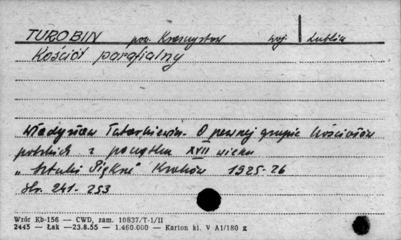 TUROBIN pow. Krasnystaw woj. Lublin
Kościół parafialny
Władysław Tatarkiewicz. O pewnej grupie kościołów
polskich z początku XVII wieku
„Sztuki Piękne" Kraków 1925-26
str. 241-253
Wzór Kb-156 — CWD, zam. 10837/T-1/II
2445 — Łak — 23.8.55 — 1.460.000 — Karton kl. V A1/180 g